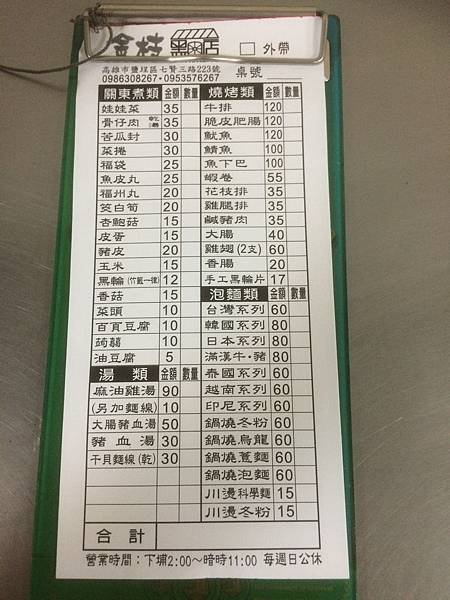 金枝黑輪店 □外帶
高雄市鹽埕區七賢三路223號
0986308267·0953576267 桌號
關東煮類 金額 數量
娃娃菜 35
骨仔肉 乾湯 35
苦瓜封 30
菜捲 30
福袋 25
魚皮丸 25
福州丸 20
筊白筍 20
杏鮑菇 15
皮蛋 15
豬皮 20
玉米 15
黑輪(竹輪一律) 12
香菇 15
菜頭 10
百頁豆腐 10
蒟蒻 10
油豆腐 5
湯類 金額 數量
麻油雞湯 90
(另加麵線) 10
大腸豬血湯 50
豬血湯 30
干貝麵線(乾) 30
合計
燒烤類 金額 數量
牛排 120
脆皮肥腸 120
魷魚 120
鯖魚 100
魚下巴 100
蝦卷 55
花枝排 35
雞腿排 35
鹹豬肉 35
大腸 40
雞翅(2支) 60
香腸 20
手工黑輪片 17
泡麵類 金額 數量
台灣系列 60
韓國系列 80
日本系列 80
滿漢牛·豬 80
泰國系列 60
越南系列 60
印尼系列 60
鍋燒冬粉 60
鍋燒烏龍 60
鍋燒薏麵 60
鍋燒泡麵 60
川燙科學麵 15
川燙冬粉 15
營業時間：下埔2:00～暗時11:00 每週日公休